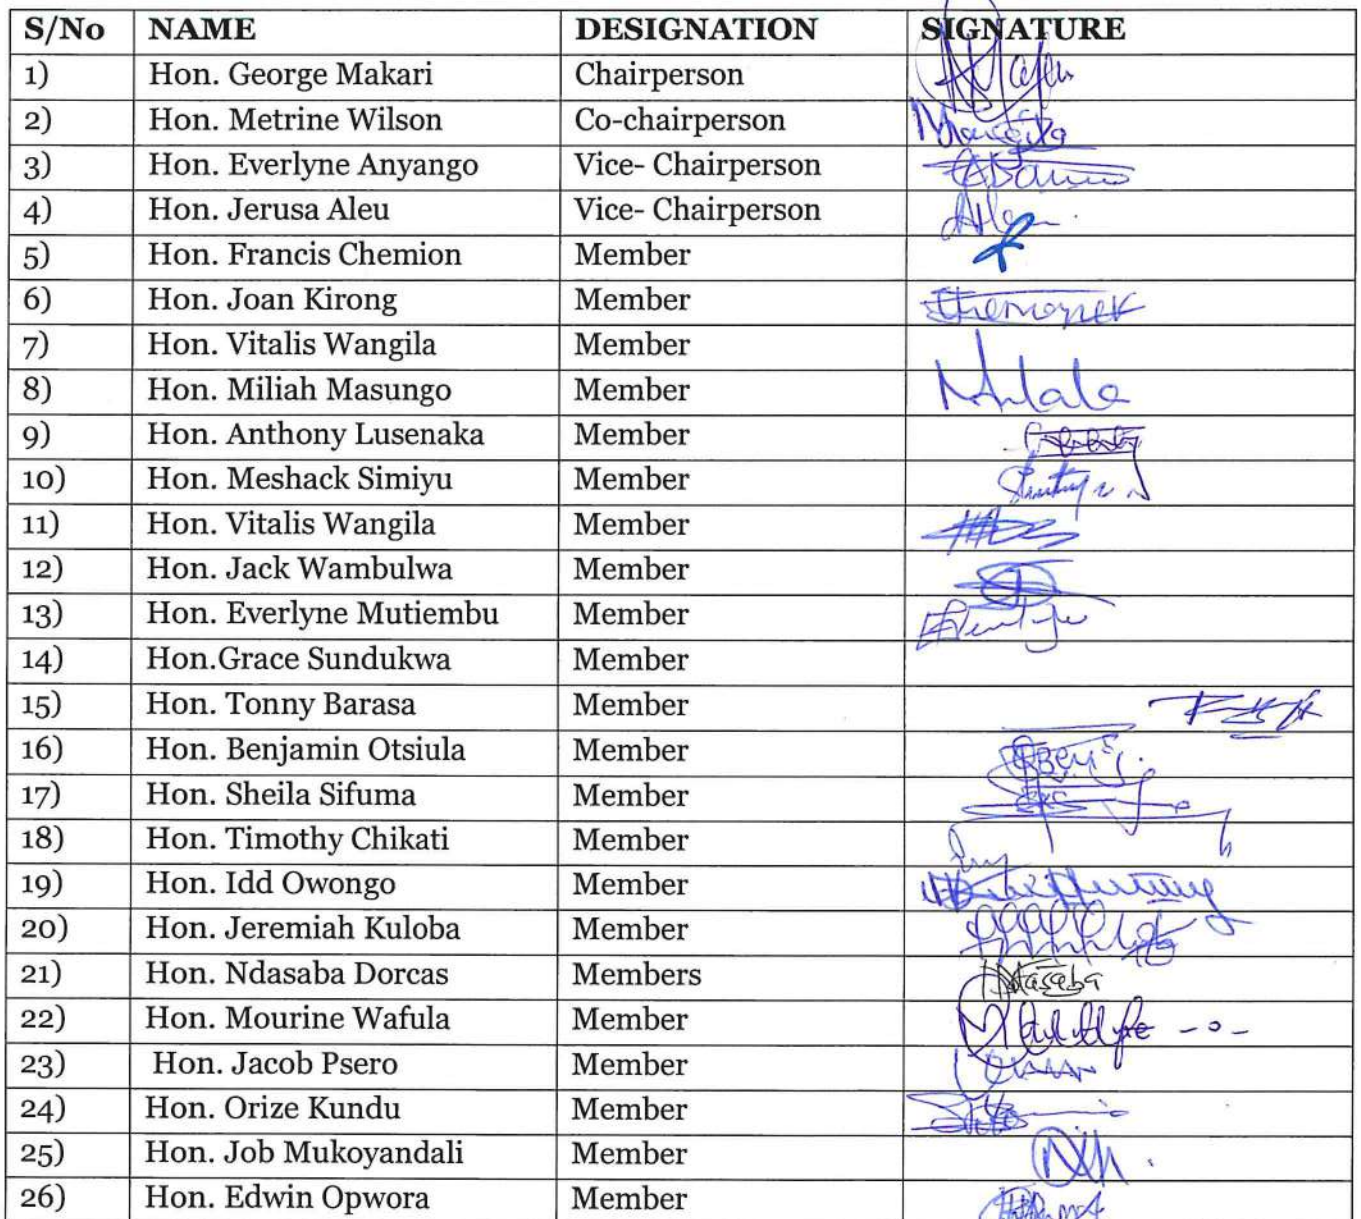 S/No NAME DESIGNATION SIGNATURE
1) Hon. George Makari Chairperson
2) Hon. Metrine Wilson Co-chairperson
3) Hon. Everlyne Anyango Vice- Chairperson
4) Hon. Jerusa Aleu Vice- Chairperson
5) Hon. Francis Chemion Member
6) Hon. Joan Kirong Member
7) Hon. Vitalis Wangila Member
8) Hon. Miliah Masungo Member
9) Hon. Anthony Lusenaka Member
10) Hon. Meshack Simiyu Member
11) Hon. Vitalis Wangila Member
12) Hon. Jack Wambulwa Member
13) Hon. Everlyne Mutiembu Member
14) Hon.Grace Sundukwa Member
15) Hon. Tonny Barasa Member
16) Hon. Benjamin Otsiula Member
17) Hon. Sheila Sifuma Member
18) Hon. Timothy Chikati Member
19) Hon. Idd Owongo Member
20) Hon. Jeremiah Kuloba Member
21) Hon. Ndasaba Dorcas Members
22) Hon. Mourine Wafula Member
23) Hon. Jacob Psero Member
24) Hon. Orize Kundu Member
25) Hon. Job Mukoyandali Member
26) Hon. Edwin Opwora Member